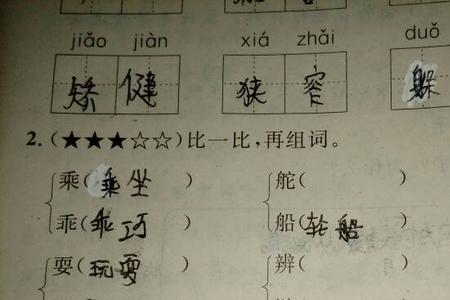 jiǎo jiàn xiá zhǎi duǒ
矫健 狭窄 躲
2. (★★★☆☆)比一比,再组词。
乘(乘坐) 舵( )
乖(乖巧) 船(轮船)
耍(玩耍) 辨( )